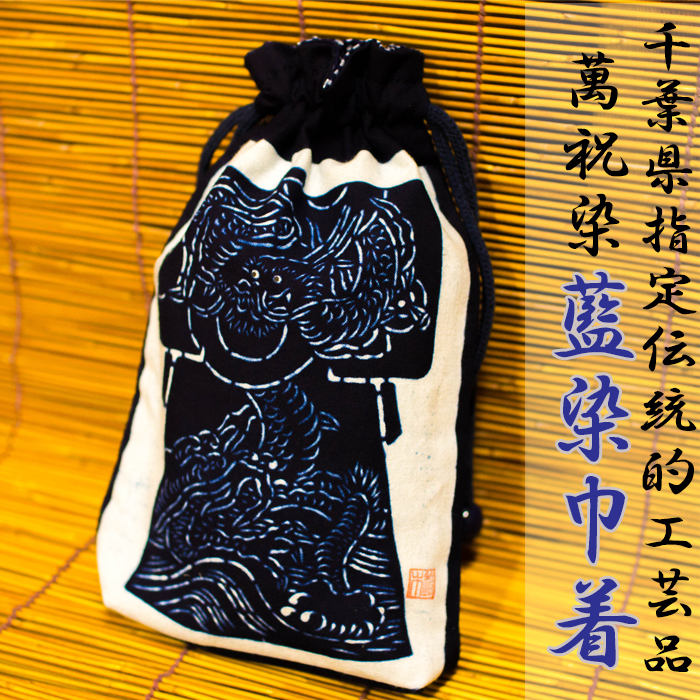 千葉県指定伝統的工芸品
萬祝染藍染巾着